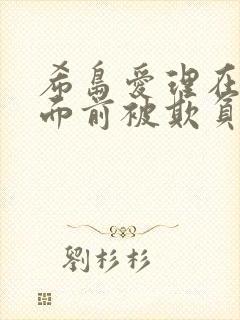 希島愛理在
面前被欺負
劉杉杉